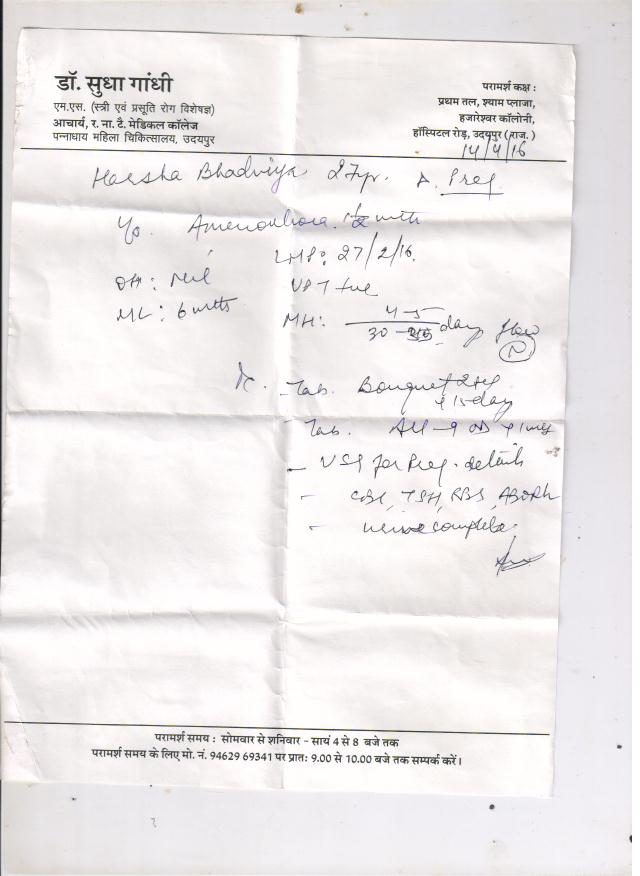 डॉ. सुधा गांधी
एम.एस. (स्त्री एवं प्रसूति रोग विशेषज्ञ)
आचार्य, र. ना. टै. मेडिकल कॉलेज
पन्नाधाय महिला चिकित्सालय, उदयपुर
परामर्श कक्ष :
प्रथम तल, श्याम प्लाजा,
हजारेश्वर कॉलोनी,
हॉस्पिटल रोड़, उदयपुर (राज.)
14/4/16
Harsha Bhadviya 27yr.
Preg
Amenorrhoea 1½ mth
LMP: 27/2/16.
OH: Nil UPT +ve
ML: 6 mths
MH: 4-5
30 - 35 days flow
N
- Tab.
15 day
Tab. All-9 OD
- USG for Preg. details
- CBC, TSH, RBS, ABORh
- urine complete.
परामर्श समय : सोमवार से शनिवार - सायं 4 से 8 बजे तक
परामर्श समय के लिए मो. नं. 94629 69341 पर प्रातः 9.00 से 10.00 बजे तक सम्पर्क करें।